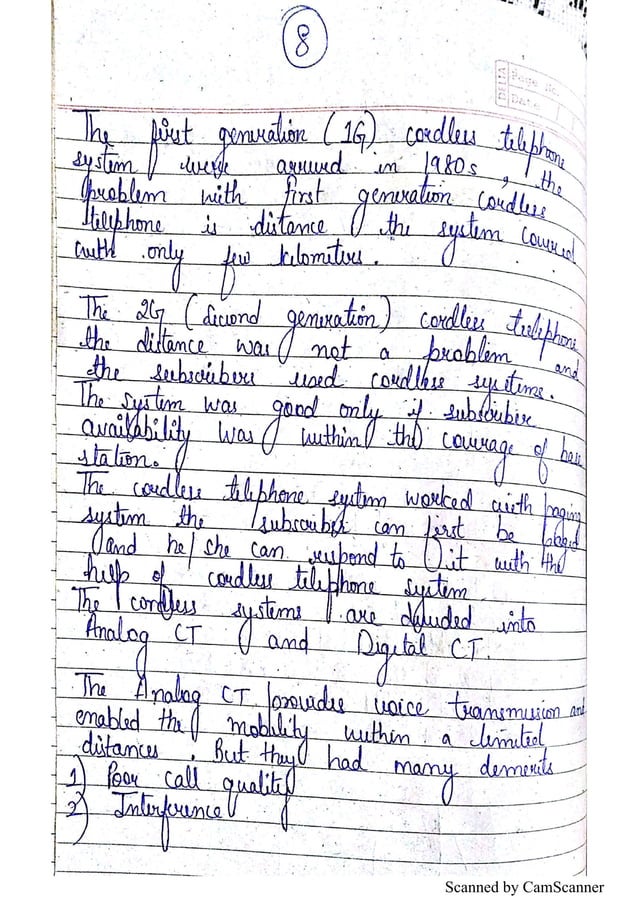 8
Page No.
Date
The first generation (1G) cordless telephone
system were arrived in 1980s, the
problem with first generation cordless
telephone is distance the system covered
with only few kilometers.
The 2G (Second generation) cordless telephone
the distance was not a problem and
the subscribers used cordless systems.
The system was good only if subscriber
availability was within the coverage of base
station.
The cordless telephone system worked with paging
system the subscriber can first be paged
and he/she can respond to it with the
help of cordless telephone system
The cordless systems are divided into
Analog CT and Digital CT.
The Analog CT provides voice transmission and
enabled the mobility within a limited
distances. But they had many demerits
1) Poor call quality
2) Interference
Scanned by CamScanner